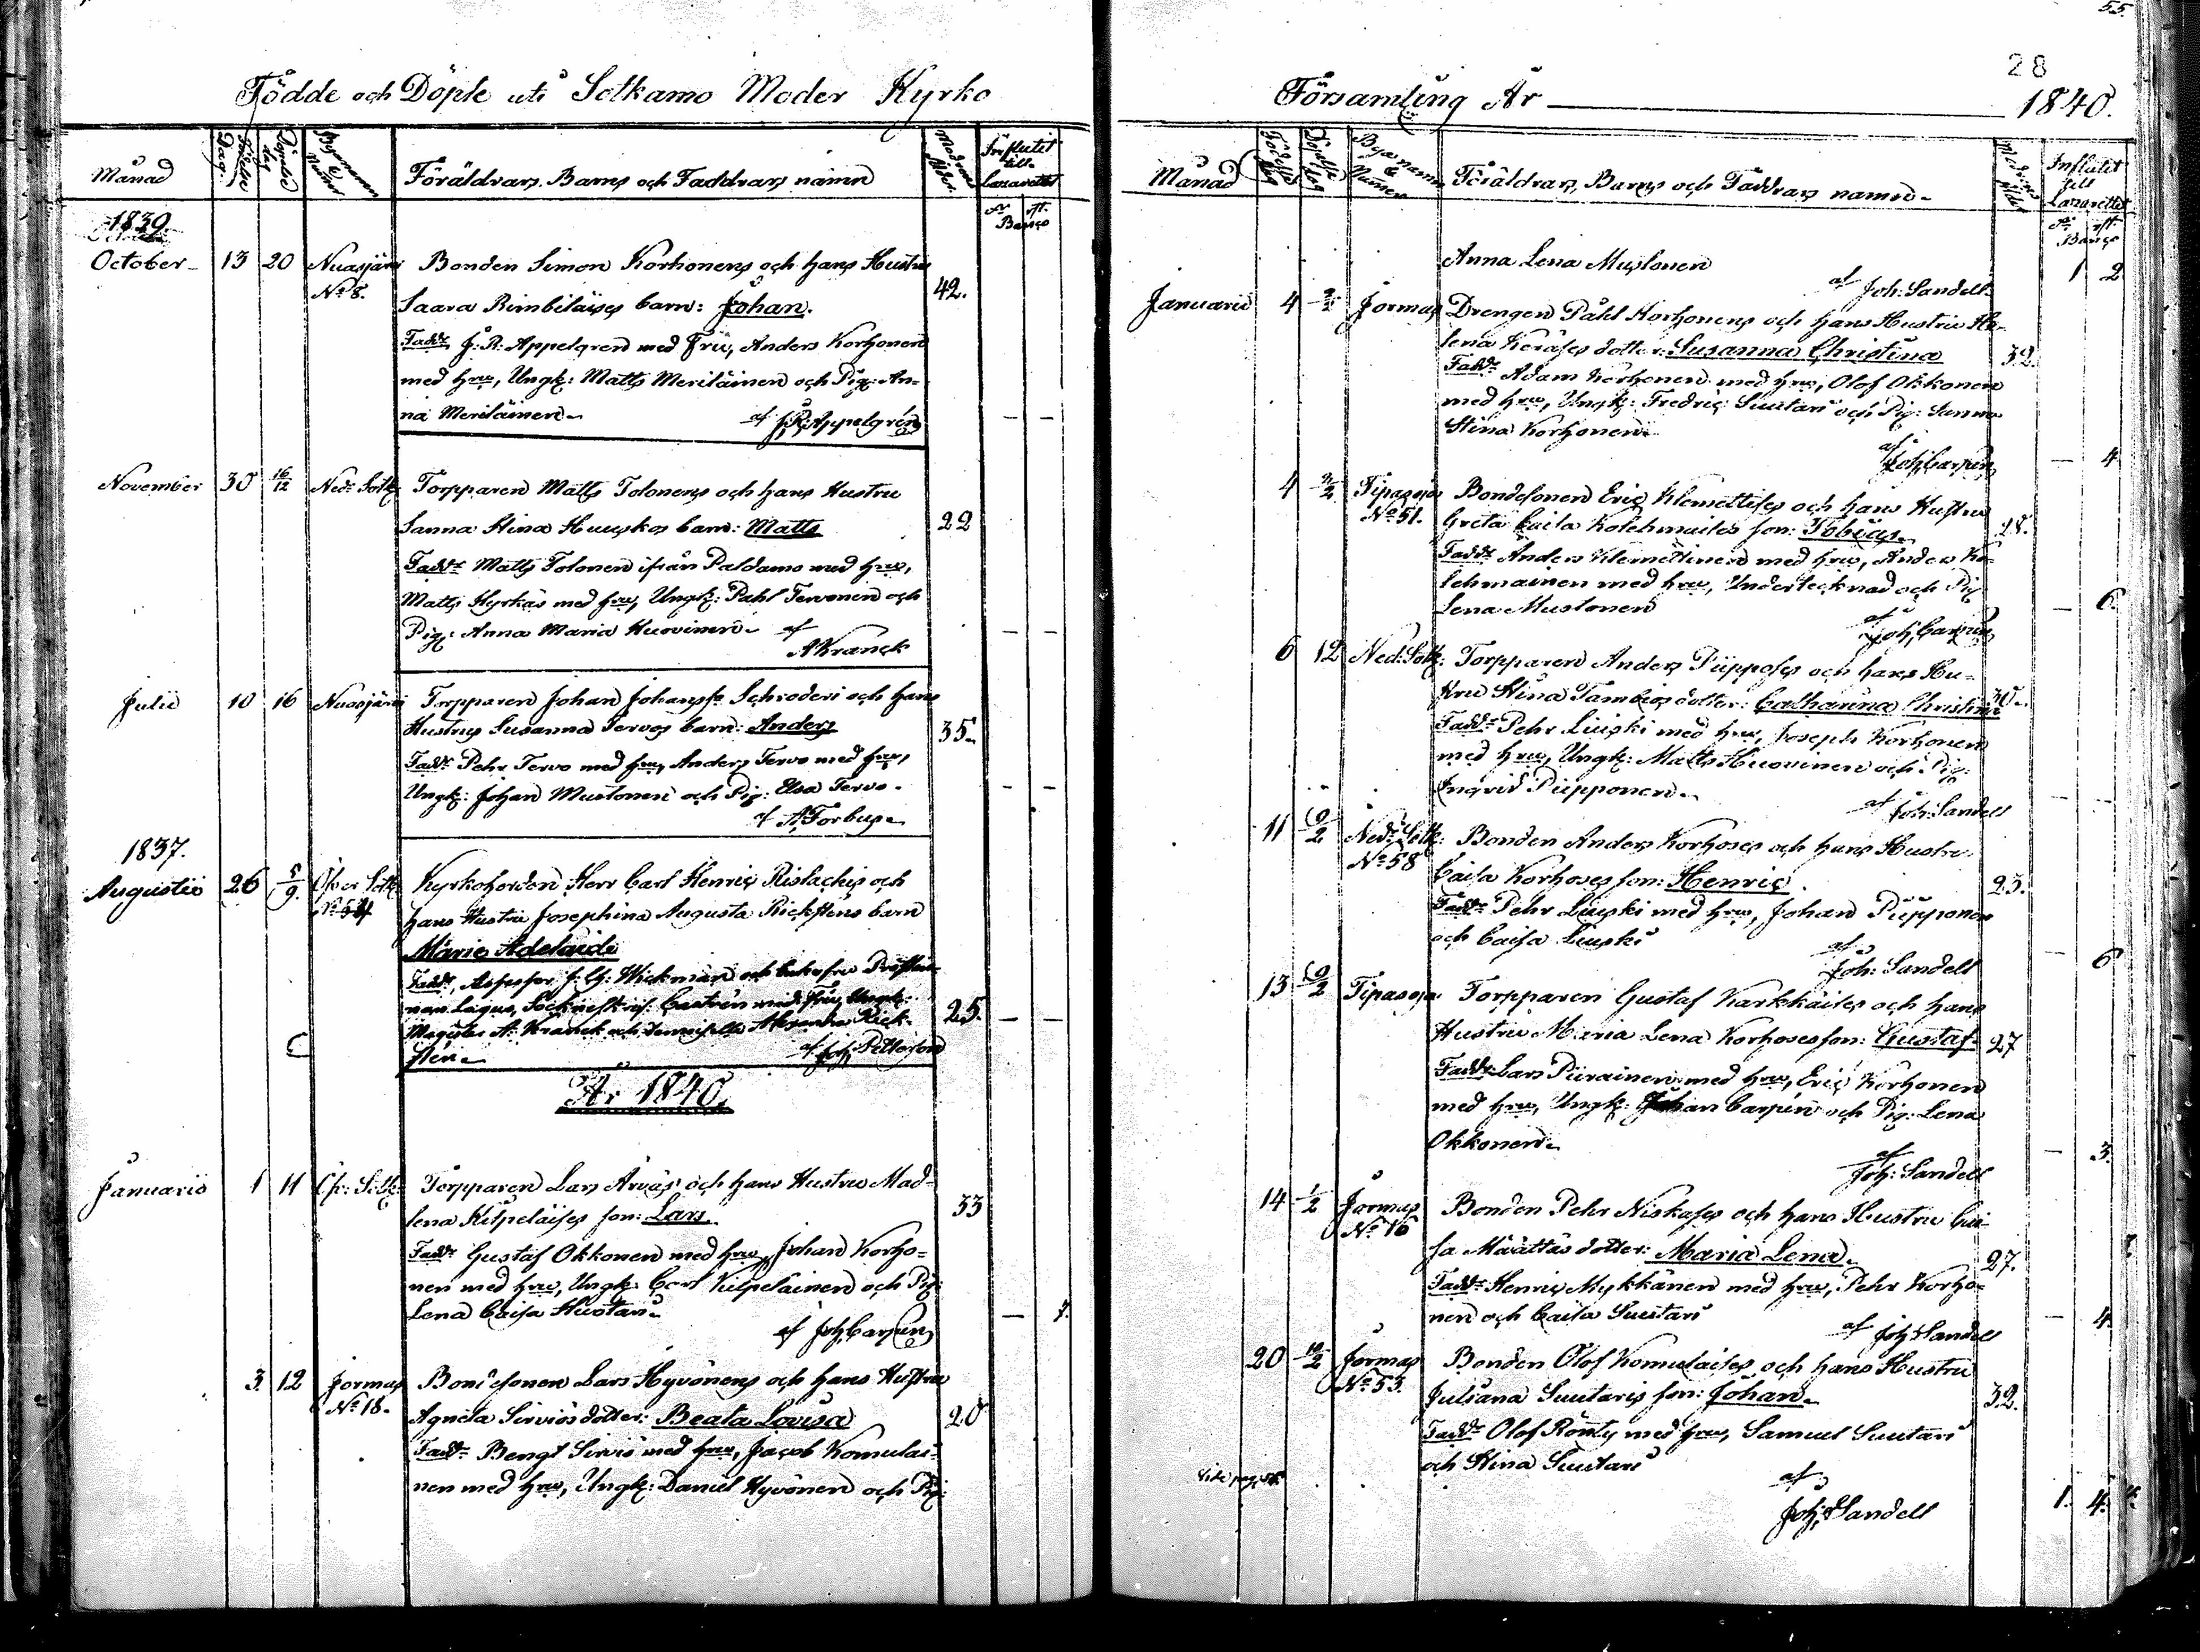 Födde och Döpte uti Sotkamo Moder Kyrko
Månad
Födelse Dag.
Döpelse dag
Föräldrars, Barns och Faddrars namn
Modrens ålder
Influtit till Lazarettet
Banco
1839.
October 13 20 Nuasjärvi Bonden Simon Korhonens och hans Hustru
No 8. Saara Rimbiläises barn: Johan. 42.
Faddr J. R. Appelgren med Fru, Anders Korhonen
med hru, Ungk: Matts Meriläinen och Pig: An-
na Meriläinen
af J. R. Appelgrén
November 30 16/12 Ned: Sotk: Torpparen Matts Tolonens och hans Hustru
Sanna Stina Huuskos barn: Matts 22
Faddr Matts Tolonen ifrån Paldamo med hru,
Matts Hyrkäs med hru, Ungk: Pahl Tervonen och
Pig: Anna Maria Huovinen af
A Kranck
Julii 10 16 Nuasjärvi Torpparen Johan Johanss: Schroderi och hans
Hustrus Susanna Tervos barn: Anders 35.
Faddr Pehr Tervo med hru, Anders Tervo med hru,
Ungk: Johan Mustonen och Pig: Elsa Tervo.
af A. Forbus
1837.
Augustii 26 5/9. Öfver Sotk Kyrkoherden Herr Carl Henric Ristackis och
hans Hustru Josephina Augusta Rickstens barn
Marie Adelaide
Faddr, Assessor Wickman och
med Fru, Ungk:
Magister A. Kranck och Alexandra Rick-
stén. 25.
af Joh Petterson
År 1840.
Januarii 1 11 Öfr: Sotk: Torpparen Lars Arvas och hans Hustru Mad-
lena Kilpeläises son: Lars. 33
Faddr Gustaf Okkonen med hru, Johan Korho-
nen med hru, Ungk: Carl Kilpeläinen och Pig:
Lena Caisa
af Joh Carpén
3. 12 Jormas Bondesonen Lars Hyvönens och hans Hustru
No 18. Agneta Sirviös dotter: Beata Lovisa 20
Faddr Bengt Sirvio med hru, Jacob Komulai-
nen med hru, Ungk: Daniel Hyvönen och Pig:
55.
28
Församling År 1840.
Månad
Födelse dag
Döpelse dag
Byarnamn & Numer
Föräldrars, Barns och Faddrars namn
Modrens ålder
Influtit till Lazarettet
Banco
Anna Lena Mustonen 1 2
af Joh: Sandell
Januarii 4 Jormas Drengen Påhl Korhonens och hans Hustru He-
lena Keräses dotter: Susanna Christina 32.
Faddr Adam Korhonen med hru, Olof Okkonen
med hru, Ungk: Fredric Suutari och Pig: Sanna
Stina Korhonen
af Joh Carpén 4
4 9/2 Tipasoja Bondesonen Eric Klemettises och hans Hustru
No 51. Greta Caisa Kolehmaises son: Tobias. 28.
Faddr Anders Klemettinen med hru, Anders Ko-
lehmainen med hru, Undertecknad och Pig
Lena Mustonen
af Joh, Carpén 6
6 12 Ned: Sotk: Torpparen Anders Piipposes och hans Hu-
stru Stina Tambios dotter: Catharina Christina 30.
Faddr Pehr Liuski med hru, Joseph Korhonen
med hru, Ungk: Matts Huovinen och Pig:
Ingrid Piipponen.
af Joh: Sandell
11 9/2 Ned: Sotk: Bonden Anders Korhoses och hans Hustru
No 58 Caisa Korhoses son: Henric. 23.
Faddr Pehr Liuski med hru, Johan Piipponen
och Caisa Liuski
af Joh: Sandell 6
13 9/2 Tipasoja Torpparen Gustaf Karkkäises och hans
Hustru Maria Lena Korhoses son: Gustaf 27
Faddr Lars Piirainen med hru, Eric Korhonen
med hru, Ungk: Johan Carpén och Pig: Lena
Okkonen.
af Joh: Sandell 3.
14 1/2 Jormas Bonden Pehr Niskases och hans Hustru Cai-
No 16 sa Määttäs dotter: Maria Lena. 27.
Faddr Henric Mykkänen med hru, Pehr Korho-
nen och Caisa Suutari
af Joh: Sandell 4
20 Jormas Bonden Olof Komulaises och hans Hustru
No 53. Juliana Suutaris son: Johan. 32.
Faddr Olof Rönty med hru, Samuel Suutari
och Stina Suutari
af
Joh: Sandell 1. 4.
Vide pag: